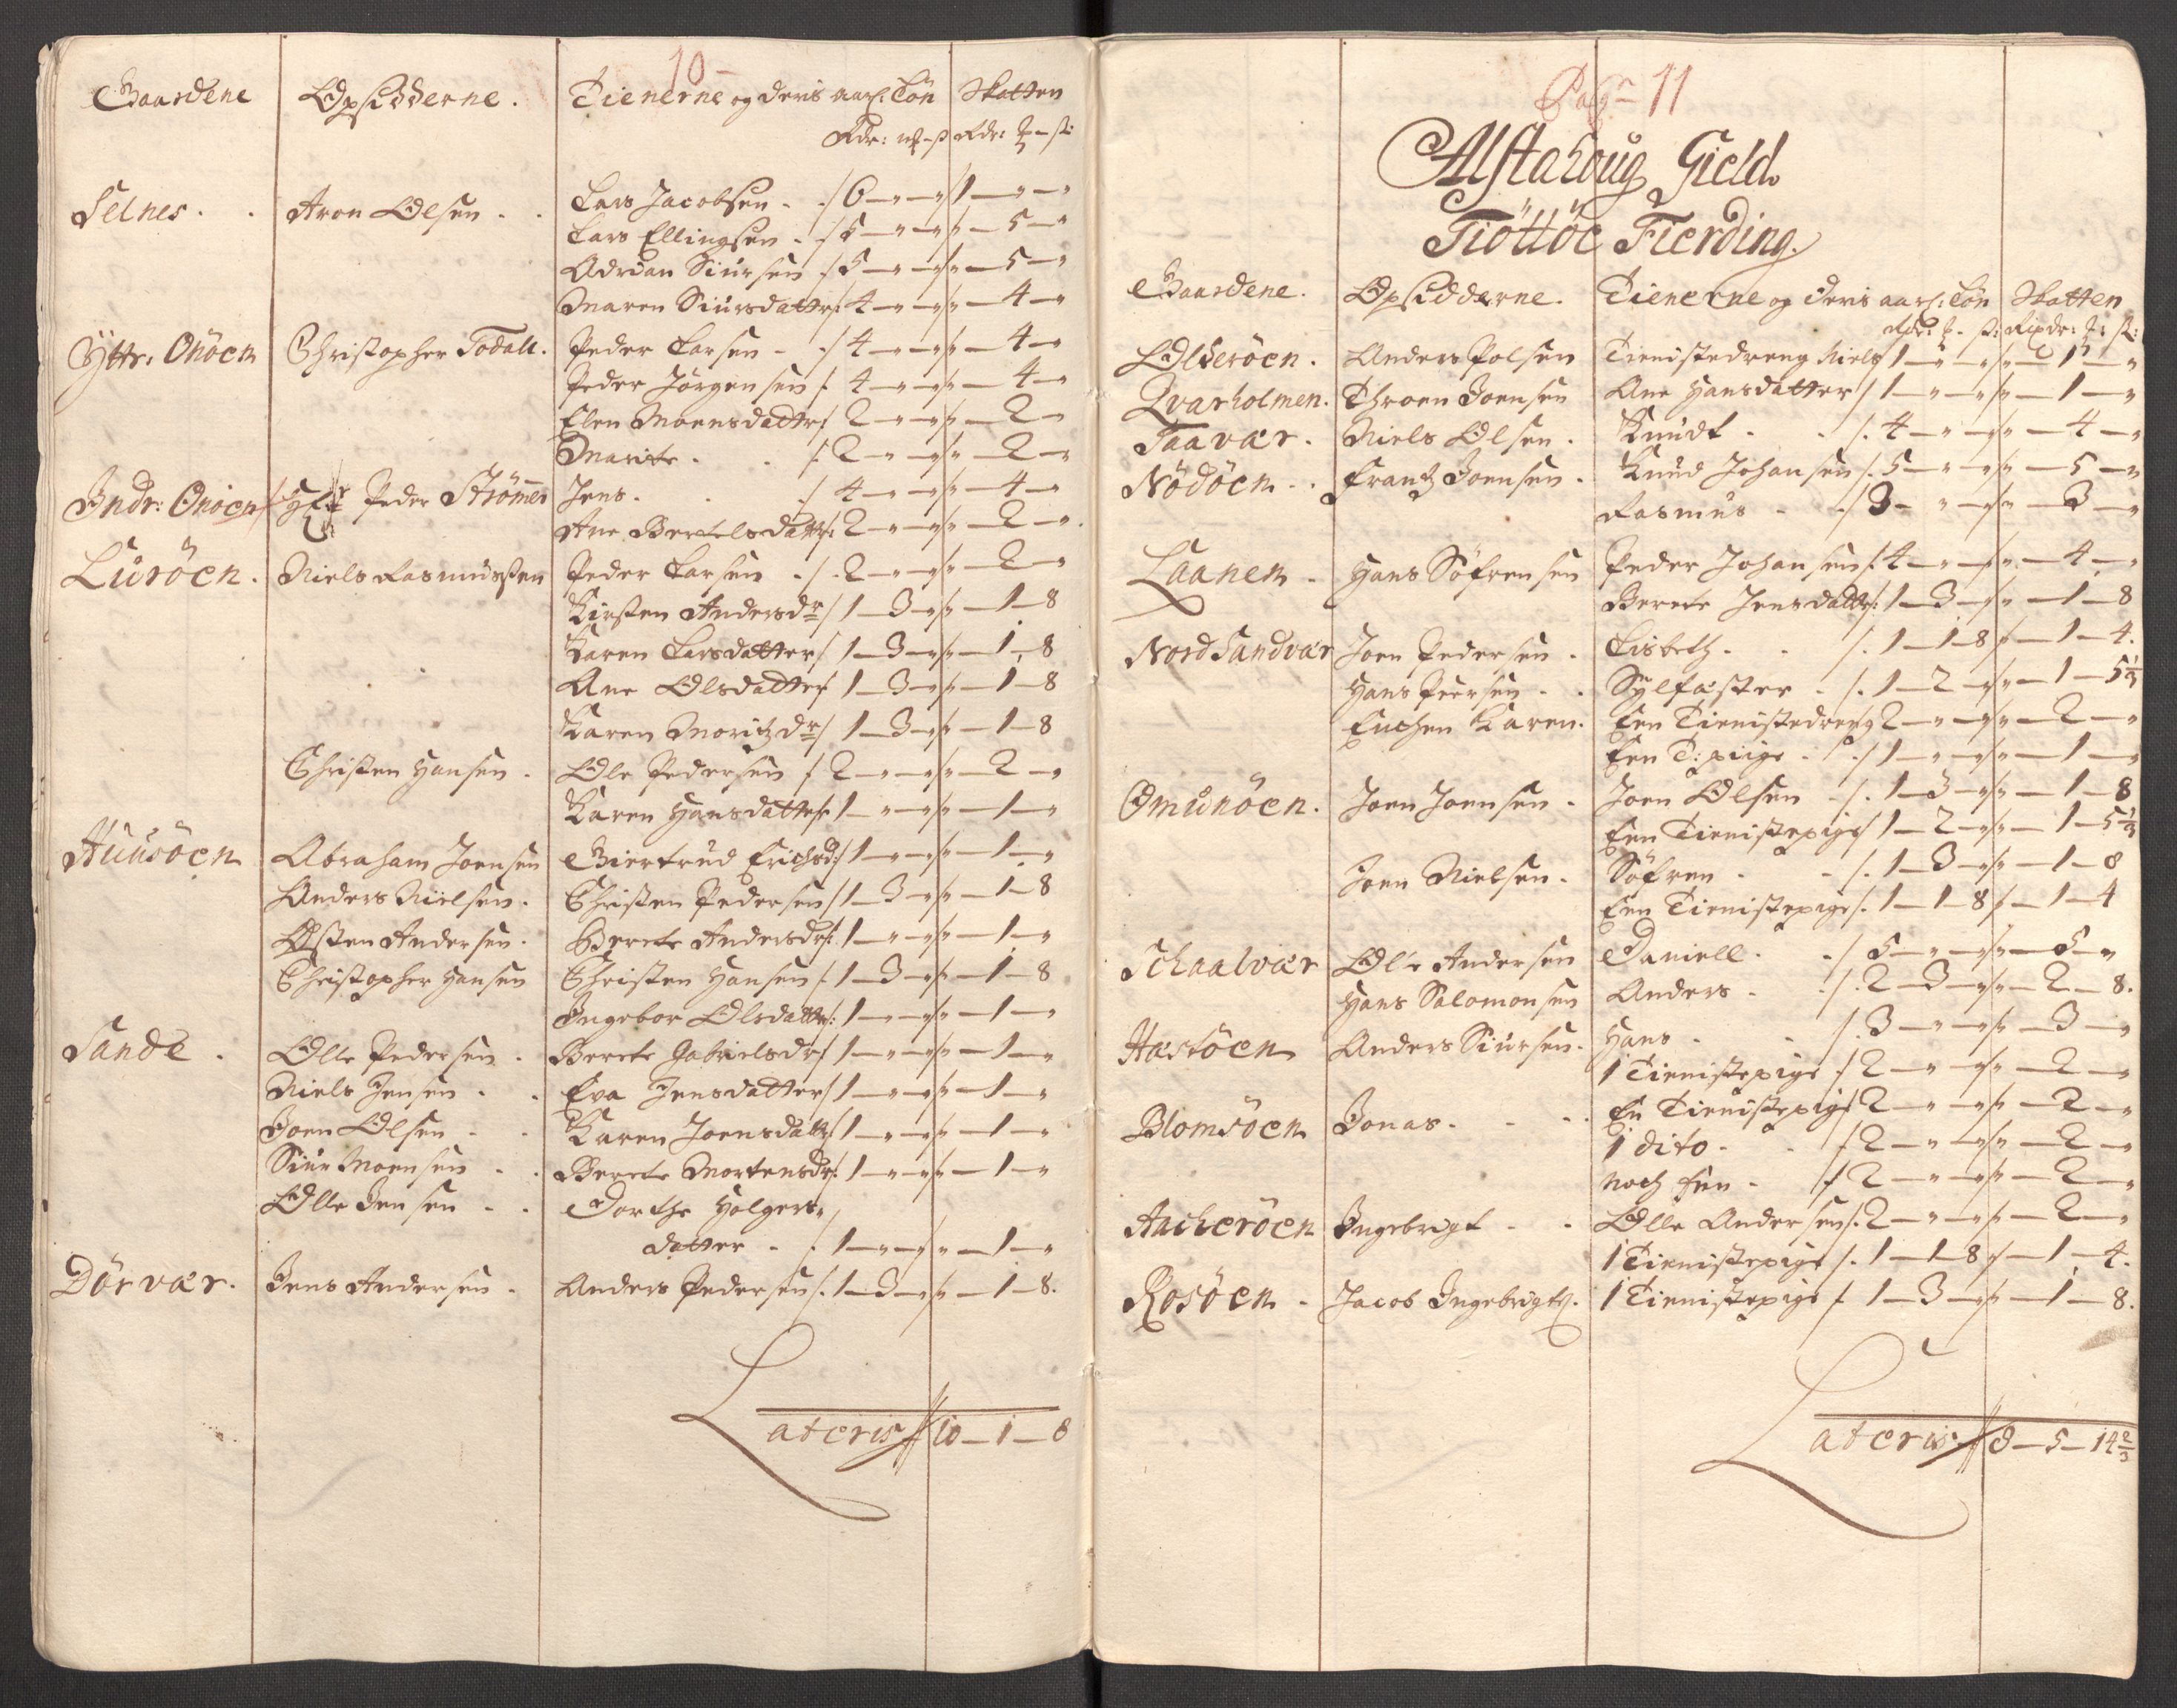 10 -
Gaardene Opsidderne. Tienerne og deris aarl: Løn Skatten
Rdr: mk - ß Rdr: - ß:
Selnes . . Aron Olsen . . Lars Jacobsen . ./ 6 — " — " / 1 — " — "
Lars Ellingsen ./ 5 — " — " / " — 5 — "
Adrian Siursen ./ 5 — " — " / " — 5 — "
Maren Siursdattr: 4 — " — " / " — 4 — "
Yttr: Onöen Christopher Todall. Peder Larsen . ./ 4 — " — " / " — 4 — "
Peder Jörgensen / 4 — " — " / " — 4 — "
Elen Moensdattr: 2 — " — " / " — 2 — "
Marite . . / 2 — " — " / " — 2 — "
Indr: Onöen Hr Peder Strömer Jens. . ./ 4 — " — " / " — 4 — "
Ane Bertelsdattr: 2 — " — " / " — 2 — "
Luröen. Niels Rasmussen Peder Larsen . / . 2 — " — " / " — 2 — "
Kirsten Andersdr / 1 — 3 — " / " — 1 — 8
Karen Larsdatter / 1 — 3 — " / " — 1 — 8
Ane Olsdatter 1 — 3 — " / " — 1 — 8
Karen Moritzdr / 1 — 3 — " / " — 1 — 8
Christen Hansen . Ole Pedersen / 2 — " — " / " — 2 — "
Karen Hansdatter 1 — " — " / " — 1 — "
Huusöen Abraham Joensen Giertrud Erichsd: / 1 — " — " / " — 1 — "
Anders Nielsen . Christen Pedersen / 1 — 3 — " / " — 1 — 8
Østen Andersen . Berete Andersdr: 1 — " — " / " — 1 — "
Christopher Hansen Christen Hansen / 1 — 3 — " / " — 1 — 8
Ingebor Olsdattr: 1 — " — " / " — 1 — "
Sande . Olle Pedersen . Berete Gabrielsdr / 1 — " — " / " — 1 — "
Niels Jensen . . Eva Jensdatter / 1 — " — " / " — 1 — "
Joen Olsen . . Karen Joensdattr / 1 — " — " / " — 1 — "
Siur Moensen . . Berete Mortensdr: 1 — " — " / " — 1 — "
Olle Jensen . . Dorthe Holgers"
datter . / 1 — " — " / " — 1 — "
Dörvær. Jens Andersen . Anders Pedersen / . 1 — 3 — " / " — 1 — 8.
Lateris // 10 — 1 — 8
Pag: 11
Alstahoug Gield.
Tiöttöe Fierding.
Gaardene. Opsidderne. Tienerne og deris aarl: Løn Skatten
Rdr: - ß: Rixdr: : ß:
Olderöen. Anders Polsen Tienistedreng Niels 1 — " — " / " — 1 — "
Qvarholmen. Throen Joensen Ane Hansdatter / 1 — " — " / " — 1 — "
Taavær. Niels Olsen . Knudt . . / . 4 — " — " / " — 4 — "
Nödöen . . Frantz Joensen . Knud Johansen / . 5 — " — " / " — 5 — "
Rasmus . . / 3 — " — " / " — 3 — "
Laanen . Hans Söfrensen Peder Johansen / 4 — " — " / " — 4 — "
Berete Jensdattr: 1 — 3 — " / " — 1 — 8
Nord Sandvær Joen Pedersen . Lisbeth . . / . 1 — 1 — 8 / " — 1 — 4.
Hans Peersen . . Sylfäster . / . 1 — 2 — " / " — 1 — 5 1/3
Enchen Karen. Een Tienistedreng 2 — " — " / " — 2 — "
Een T: piige . . / 1 — " — " / " — 1 — "
Omunöen. Joen Joensen . Joen Olsen . / . 1 — 3 — " / " — 1 — 8
Een Tienistepige / 1 — 2 — " / " — 1 — 5 1/3
Joen Nielsen . Söfren . . / . 1 — 3 — " / " — 1 — 8
Een Tienistepige / . 1 — 1 — 8 / " — 1 — 4
Schaalvær Ole Andersen Daniell . . / 5 — " — " / " — 5 — "
Hans Salomonsen Anders . . / . 2 — 3 — " / " — 2 — 8.
Hæstöen Anders Siursen. Hans . . / 3 — " — " / " — 3 — "
1 Tienistepige / 2 — " — " / " — 2 — "
Blomsöen Jonas . . . En Tienistepige 2 — " — " / " — 2 — "
1 dito . . / 2 — " — " / " — 2 — "
Noch Een . / 2 — " — " / " — 2 — "
Aacheröen Ingebrigt . . Olle Andersen / . 2 — " — " / " — 2 — "
1 Tienistepige / . 1 — 1 — 8 / " — 1 — 4.
Rosöen . Jacob Ingebrigts. 1 Tienistepige / 1 — 3 — " / " — 1 — 8.
Lateris // 8 — 5 — 14 2/3